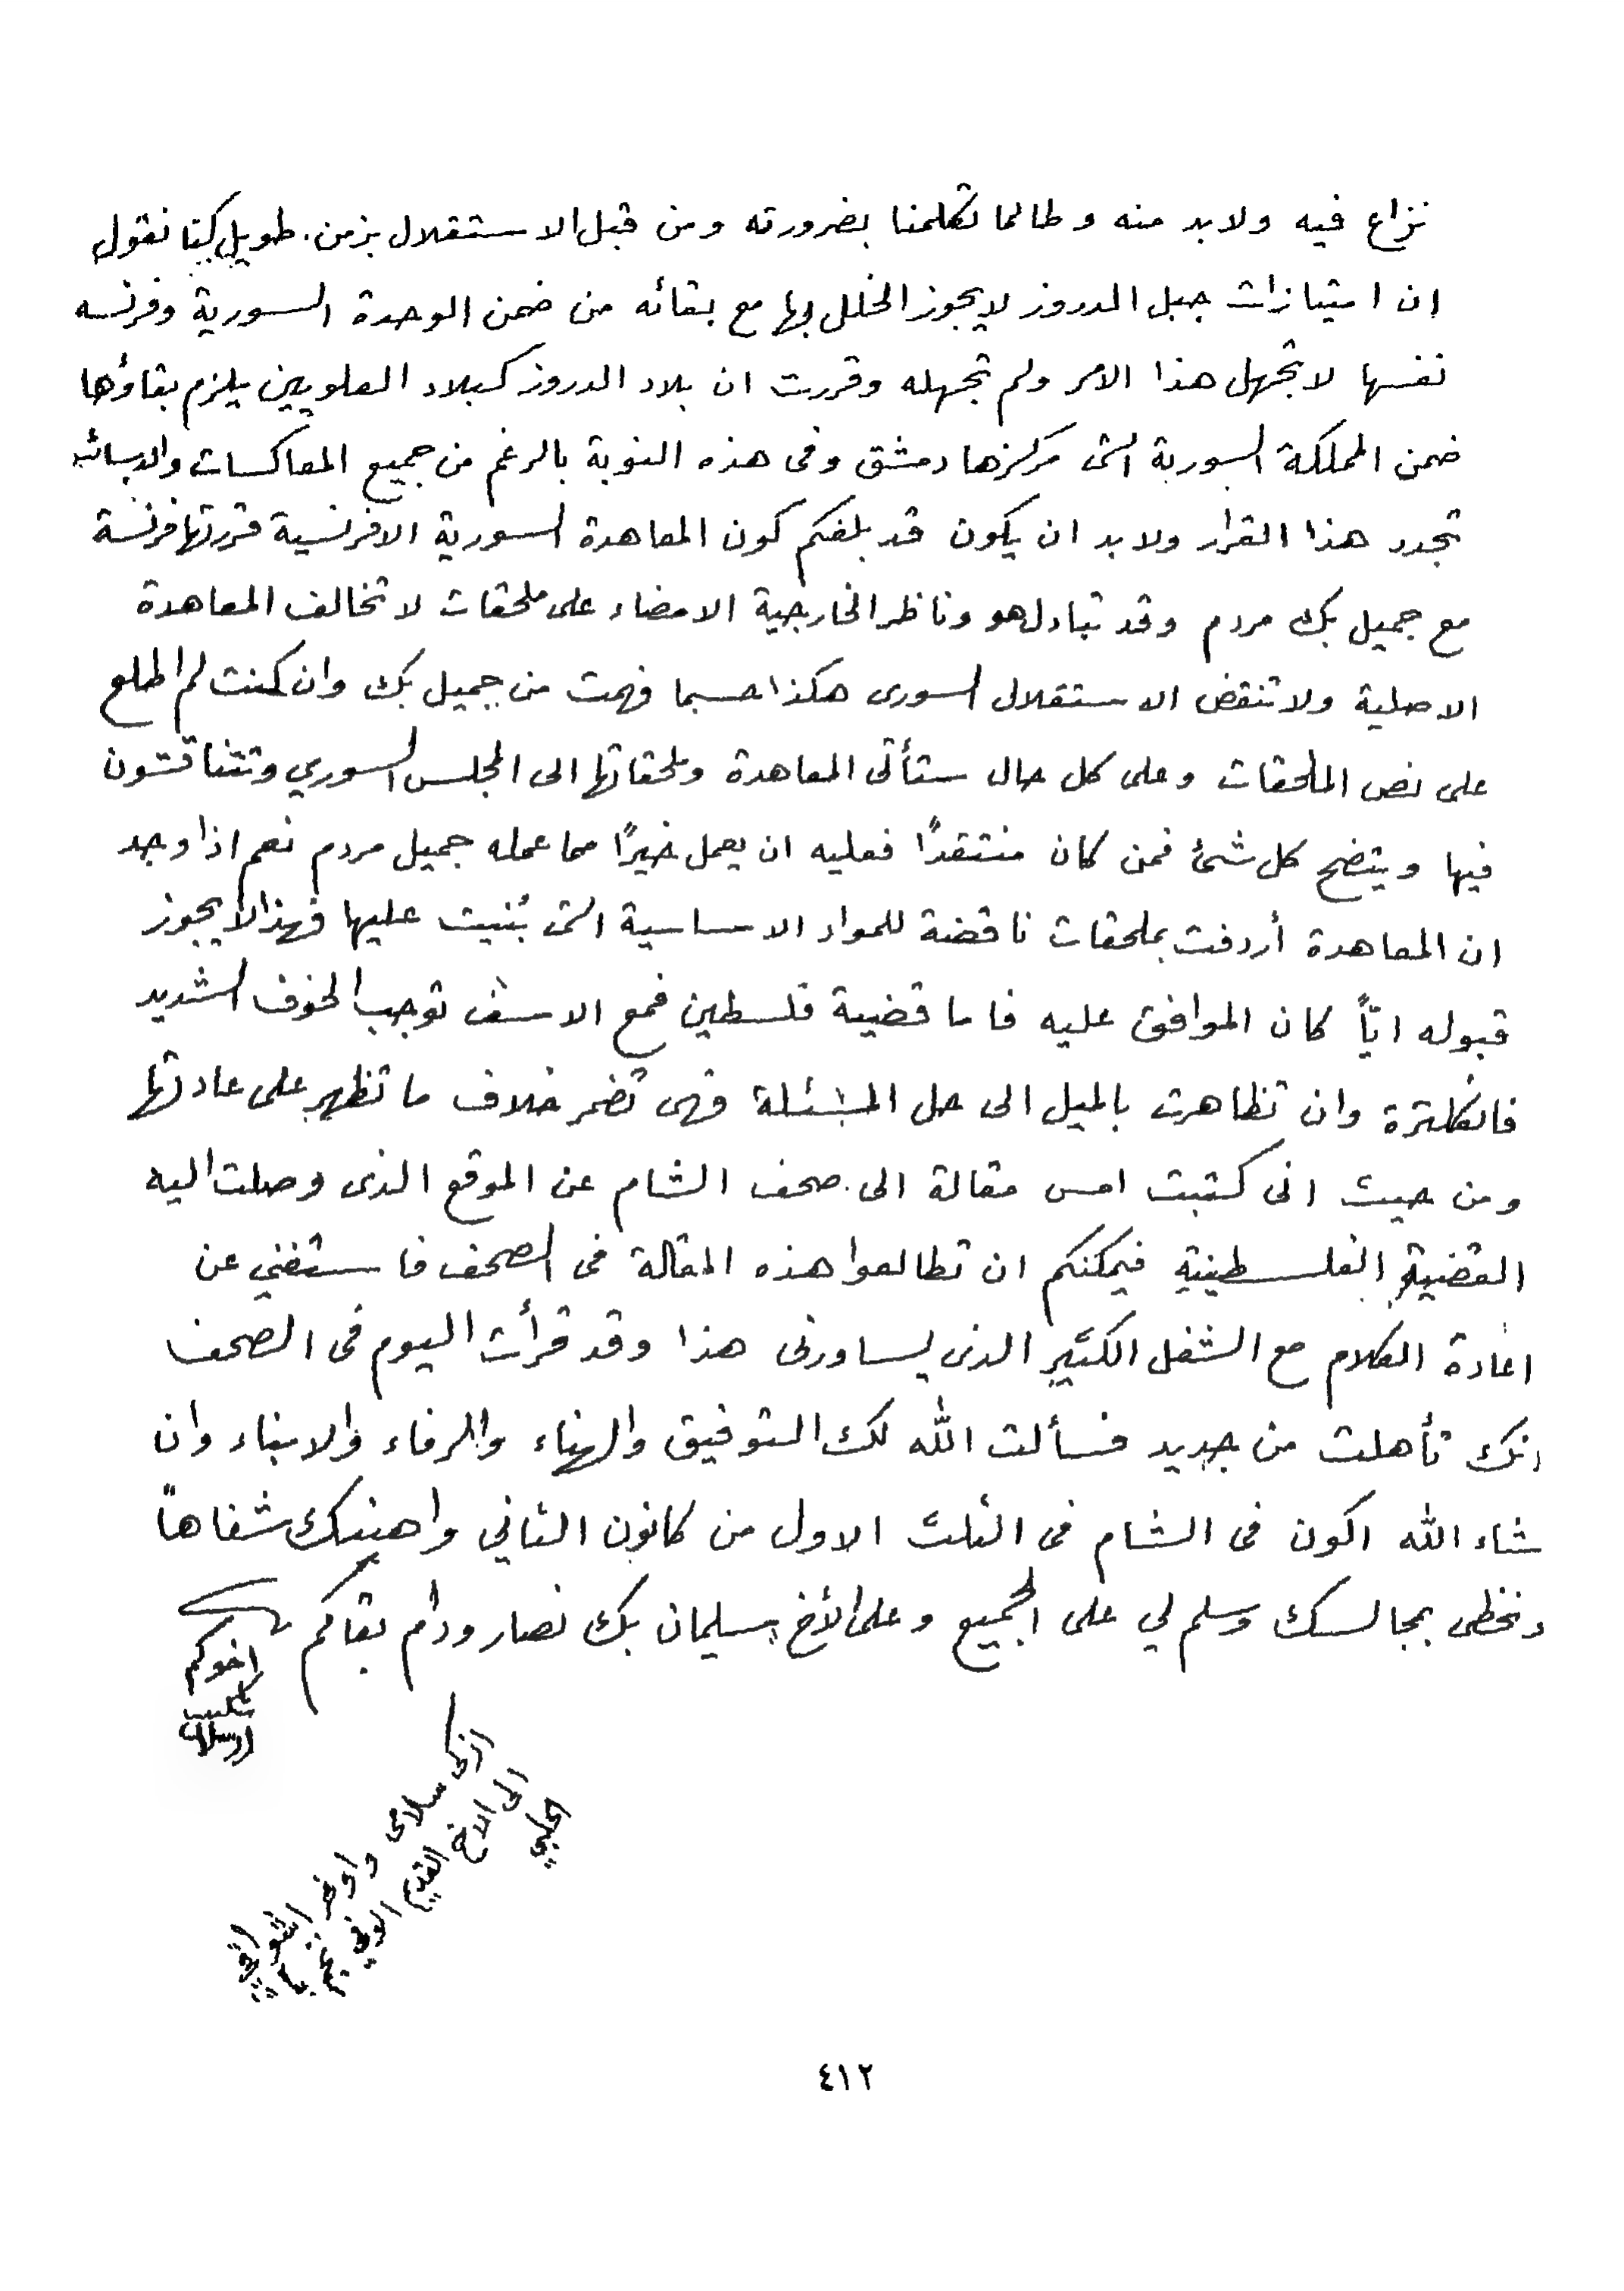 نزاع فيه ولابد منه وطالما تكلمنا بضرورته ومن قبل الاستقلال بزمن طويل كنا نقول
ان امتيازات جبل الدروز لايجوز الخلل بها مع بقائه من ضمن الوحدة السورية وفرنسه
نفسها لا تجهل هذا الامر ولم تجهله وقررت ان بلاد الدروز كبلاد العلويين يلزم بقاؤها
ضمن المملكة السورية التى مركزها دمشق وفى هذه النوبة بالرغم من جميع المعاكسات والدسائس
تجدد هذا القرار ولابد ان يكون قد بلغكم كون المعاهدة السورية الافرنسية قررتها فرنسة
مع جميل بك مردم وقد تبادل هو وناظر الخارجية الامضاء على ملحقات لا تخالف المعاهدة
الاصلية ولا تنقض الاستقلال السورى هكذا حسبما فهمت من جميل بك وان كنت لم اطلع
على نص الملحقات وعلى كل حال ستأتى المعاهدة وملحقاتها الى المجلس السوري وتتناقشون
فيها ويتضح كل شئ فمن كان منتقدًا فعليه ان يعمل خيرًا مما عمله جميل مردم نعم اذا وجد
ان المعاهدة أردفت بملحقات ناقضة للمواد الاساسية التى بُنيت عليها فهذا لا يجوز
قبوله ايًّا كان الموافق عليه فاما قضية فلسطين فمع الاسف توجب الخوف الشديد
فانكلترة وان تظاهرت بالميل الى حل المسئلة فهى تضمر خلاف ما تظهر على عادتها
ومن حيث انى كتبت امس مقالة الى صحف الشام عن الموقع الذى وصلت اليه
القضية الفلسطينية فيمكنكم ان تطالعوا هذه المقالة فى الصحف فاستغني عن
اعادة الكلام مع الشغل الكثير الذى يساورنى هذا وقد قرأت اليوم فى الصحف
انك تأهلت من جديد فسألت الله لك التوفيق والهناء والرفاء والابناء وان
شاء الله اكون فى الشام فى الثلث الاول من كانون الثاني واهنئك شفاهاً
ونحظى بمجالسك وسلم لي على الجميع وعلى الأخ سليمان بك نصار ودام بقاكم
اخوكم
شكيب
ارسلان
ازكى سلامى واوفر اشواقي
الى الاخ القديم الوفي نجم بك
الحلبي
٤١٢